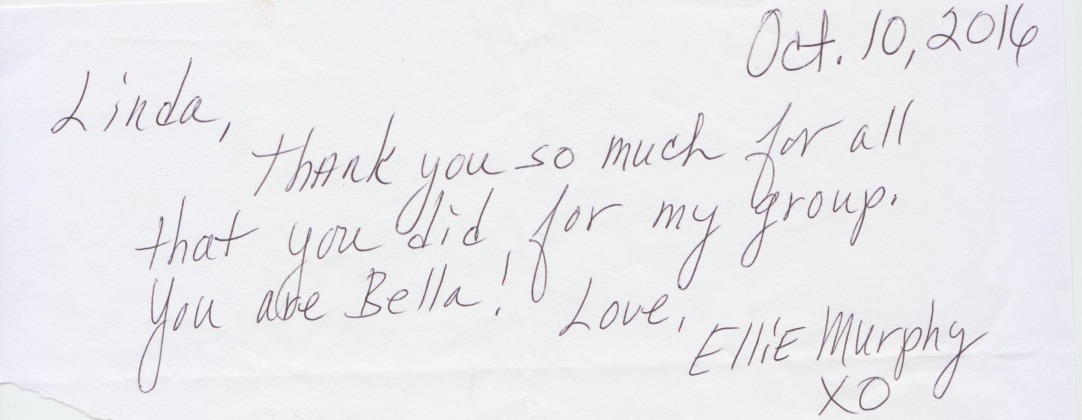 Oct. 10, 2016
Linda,
Thank you so much for all
that you did for my group.
You are Bella! Love,
Ellie Murphy
XO